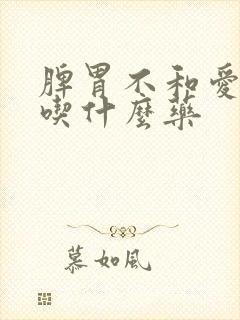 脾胃不和爱
喫什麼藥
慕如風